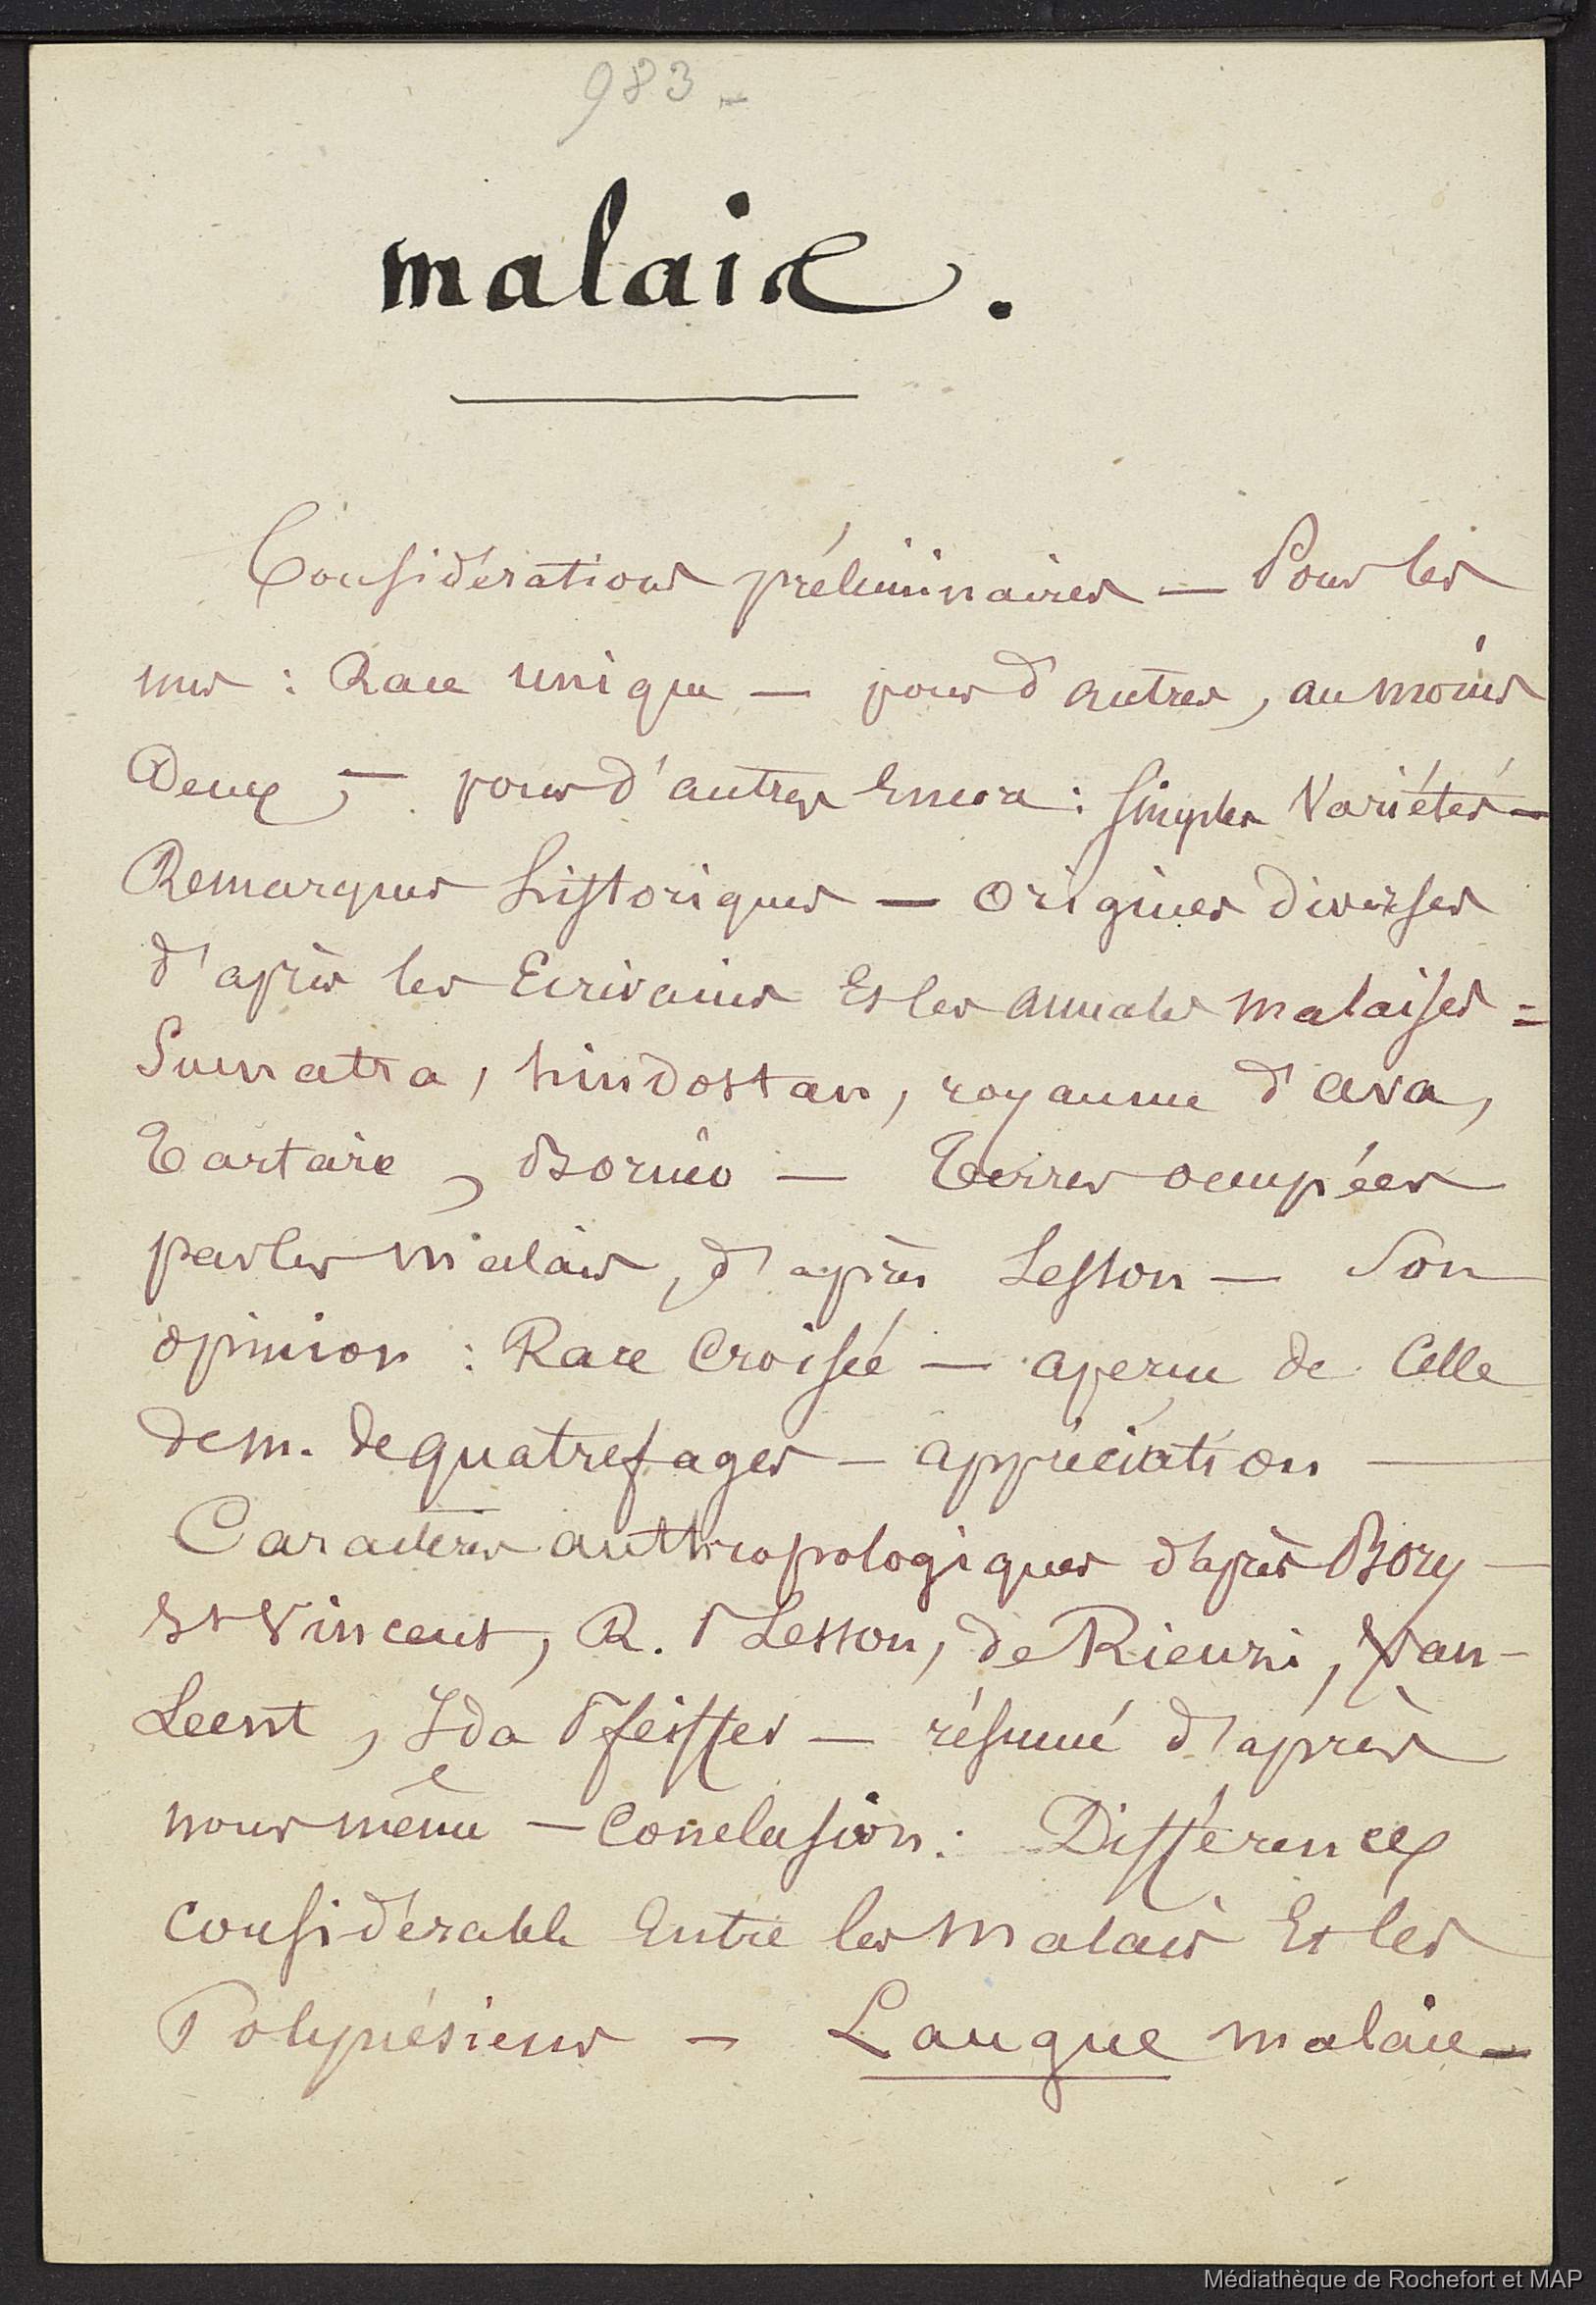 983 -
malaie.
Considérations préliminaires — Pour les
uns : Race unique — pour d'autres, au moins
Deux, — pour d'autres Encore : simples Variétés —
Remarques historiques — origines diverses
d'après les Ecrivains Et les annales malaises =
Sumatra, hindostan, royaume d'ava,
Tartarie, Bornéo — Terres occupées
par les malais, d'après Lesson — Son
opinion : Race Croisée — aperçu de Celle
de m. de quatrefages — appréciation —
Caractères anthropologiques d'après Bory —
St Vincent, R. P. Lesson, de Rienzi, Van-
Leent, Ida Pfeiffer — résumé d'après
nous même — Conclusion : Différence
Considérable Entre les malais Et les
Polynésiens — Langue malaie —
Médiathèque de Rochefort et MAP